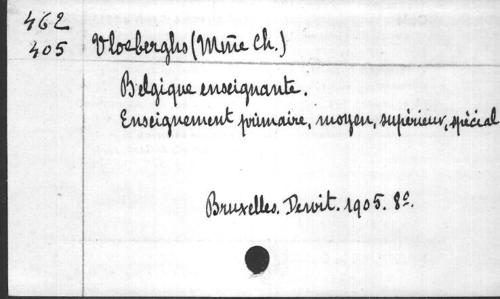 462
405 Vloeberghs (Mme Ch.)
Belgique enseignante.
Enseignement primaire, moyen, supérieur, spécial
Bruxelles. Dewit. 1905. 8º.